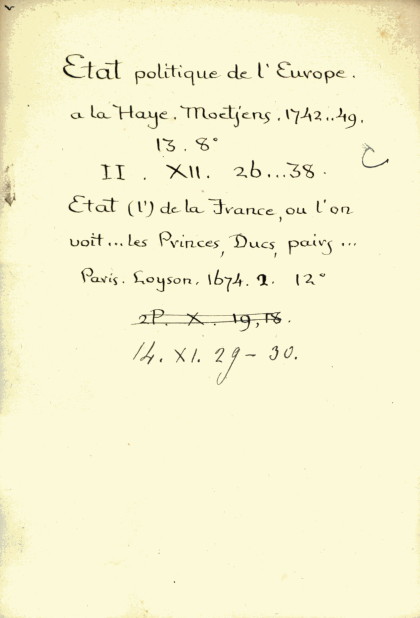 Etat politique de l'Europe.
a la Haye. Moetjens. 1742..49.
13. 8°
C
II. XII. 26...38.
Etat (l') de la France, ou l'on
voit... les Princes, Ducs, pairs...
Paris. Loyson. 1674. 2. 12°
2P. X. 19, 18.
14. XI. 29-30.